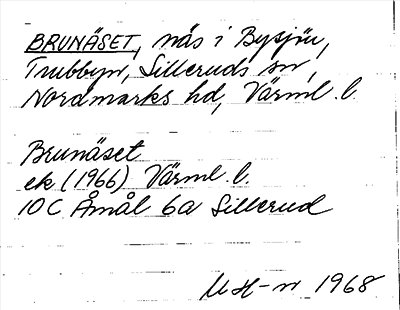 BRUNÄSET, näs i Bysjön,
Trubbyn, Silleruds sn,
Nordmarks hd, Värml. l.
Brunäset
ek (1966) Värml. l.
10C Åmål 6a Sillerud
MH-n 1968